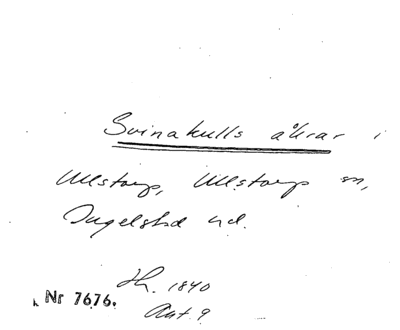 Svinakulls åkrar i
Ullstorp, Ullstorp sn,
Ingelstad hd.
Sk. 1840
Nr 7676.
Akt 9